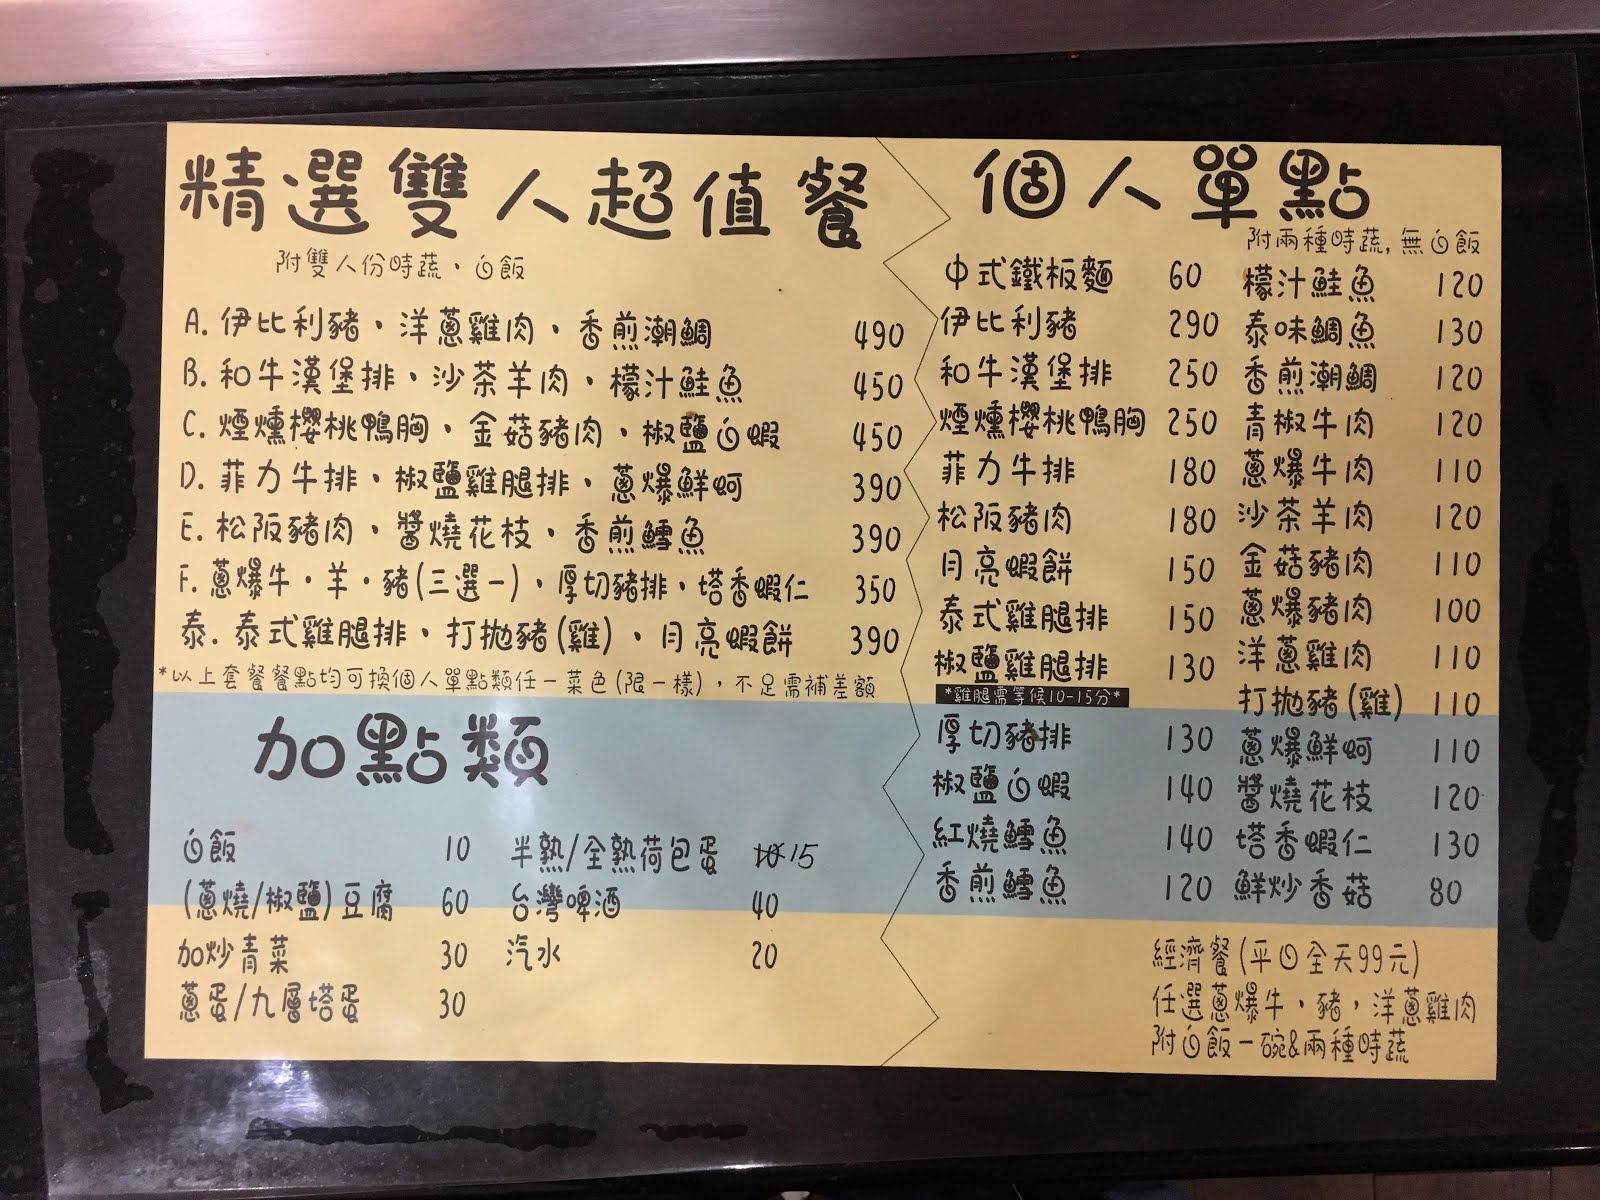 精選雙人超值餐
附雙人份時蔬、白飯
A. 伊比利豬、洋蔥雞肉、香煎潮鯛 490
B. 和牛漢堡排、沙茶羊肉、檬汁鮭魚 450
C. 煙燻櫻桃鴨胸、金菇豬肉、椒鹽白蝦 450
D. 菲力牛排、椒鹽雞腿排、蔥爆鮮蚵 390
E. 松阪豬肉、醬燒花枝、香煎鱈魚 390
F. 蔥爆牛・羊・豬(三選一)、厚切豬排、塔香蝦仁 350
泰. 泰式雞腿排、打拋豬(雞)、月亮蝦餅 390
*以上套餐餐點均可換個人單點類任一菜色(限一樣)，不足需補差額
加點類
白飯 10
(蔥燒/椒鹽)豆腐 60
加炒青菜 30
蔥蛋/九層塔蛋 30
半熟/全熟荷包蛋 10 15
台灣啤酒 40
汽水 20
個人單點
附兩種時蔬,無白飯
中式鐵板麵 60
伊比利豬 290
和牛漢堡排 250
煙燻櫻桃鴨胸 250
菲力牛排 180
松阪豬肉 180
月亮蝦餅 150
泰式雞腿排 150
椒鹽雞腿排 130
*雞腿需等候10-15分*
厚切豬排 130
椒鹽白蝦 140
紅燒鱈魚 140
香煎鱈魚 120
檬汁鮭魚 120
泰味鯛魚 130
香煎潮鯛 120
青椒牛肉 120
蔥爆牛肉 110
沙茶羊肉 120
金菇豬肉 110
蔥爆豬肉 100
洋蔥雞肉 110
打拋豬(雞) 110
蔥爆鮮蚵 110
醬燒花枝 120
塔香蝦仁 130
鮮炒香菇 80
經濟餐(平日全天99元)
任選蔥爆牛、豬，洋蔥雞肉
附白飯一碗&兩種時蔬